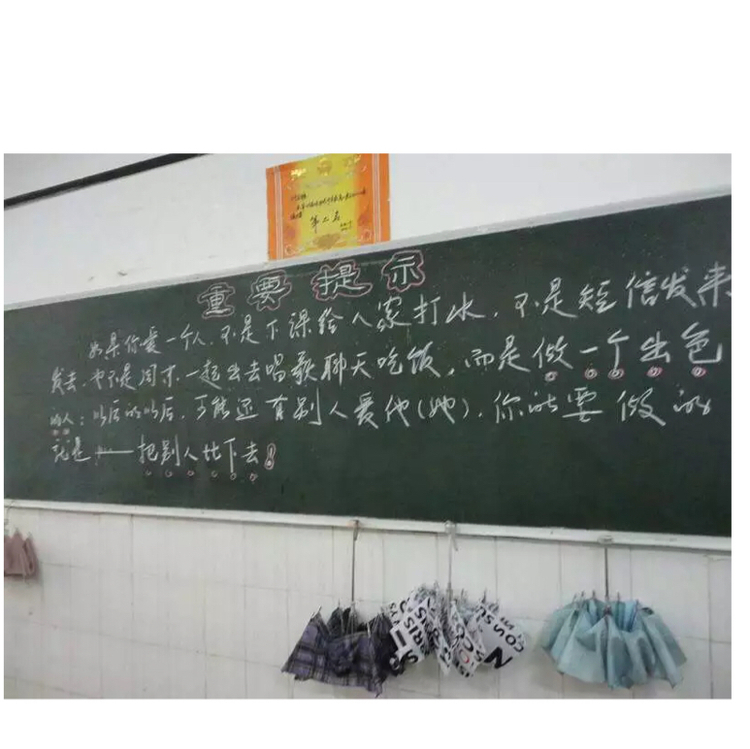 第二名
重要提示
如果你爱一个人，不是下课给人家打水，不是短信发来
发去，也不是周末一起出去唱歌聊天吃饭，而是做一个出色
的人；以后的以后，可能还有别人爱他（她），你所要做的
就是——把别人比下去！